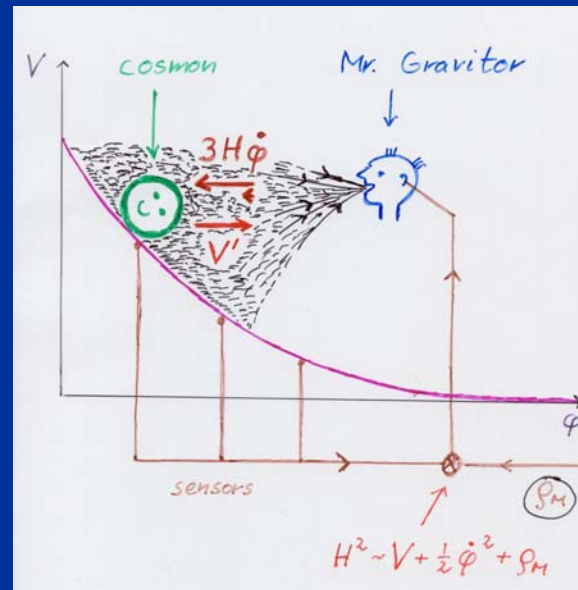 V
cosmon
Mr. Gravitor
3Hφ̇
V'
φ
sensors
ρM
H² ~ V + ½ φ̇² + ρM